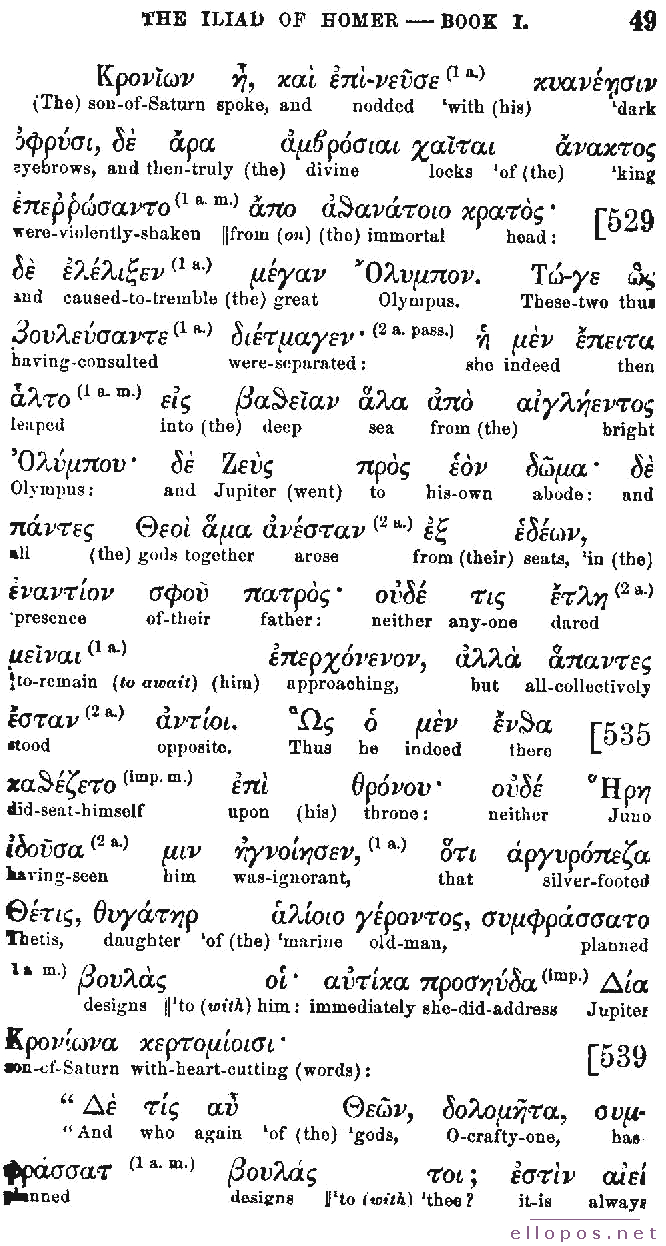 THE ILIAD OF HOMER — BOOK I. 49
Κρονῑων ἦ, καὶ ἐπὶ-νεῦσε (1 a.) κυανέῃσιν
(The) son-of-Saturn spoke, and nodded 'with (his) 'dark
ὀφρύσι, δὲ ἄρα ἀμβρόσιαι χαῖται ἄνακτος
eyebrows, and then-truly (the) divine locks 'of (the) 'king
ἐπεῤῥώσαντο (1 a. m.) ἄπο ἀθανάτοιο κρατὸς· [529
were-violently-shaken ‖from (on) (the) immortal head:
δὲ ἐλέλιξεν (1 a.) μέγαν Ὄλυμπον. Τώ-γε ὣς
and caused-to-tremble (the) great Olympus. These-two thus
βουλεύσαντε (1 a.) διέτμαγεν· (2 a. pass.) ἡ μὲν ἔπειτα
having-consulted were-separated: she indeed then
ἆλτο (1 a. m.) εἰς βαθεῖαν ἅλα ἀπὸ αἰγλήεντος
leaped into (the) deep sea from (the) bright
Ὀλύμπου· δὲ Ζεὺς πρὸς ἑὸν δῶμα· δὲ
Olympus: and Jupiter (went) to his-own abode: and
πάντες Θεοὶ ἅμα ἀνέσταν (2 a.) ἐξ ἑδέων,
all (the) gods together arose from (their) seats, 'in (the)
ἐναντίον σφοῦ πατρὸς· οὐδέ τις ἔτλη (2 a.)
'presence of-their father: neither any-one dared
μεῖναι (1 a.) ἐπερχόνενον, ἀλλὰ ἅπαντες
‖to-remain (to await) (him) approaching, but all-collectively
ἔσταν (2 a.) ἀντίοι. Ὣς ὁ μὲν ἔνθα [535
stood opposite. Thus he indeed there
καθέζετο (imp. m.) ἐπὶ θρόνου· οὐδέ Ἥρη
did-seat-himself upon (his) throne: neither Juno
ἰδοῦσα (2 a.) μιν ἠγνοίησεν, (1 a.) ὅτι ἀργυρόπεζα
having-seen him was-ignorant, that silver-footed
Θέτις, θυγάτηρ ἁλίοιο γέροντος, συμφράσσατο
Thetis, daughter 'of (the) 'marine old-man, planned
1a m.) βουλὰς οἱ· αὐτίκα προσηύδα (imp.) Δία
designs ‖'to (with) him: immediately she-did-address Jupiter
Κρονίωνα κερτομίοισι· [539
son-of-Saturn with-heart-cutting (words):
“ Δὲ τίς αὖ Θεῶν, δολομῆτα, συμ-
“And who again 'of (the) 'gods, O-crafty-one, has
φράσσατ (1 a. m.) βουλάς τοι; ἐστὶν αἰεί
planned designs ‖'to (with) 'thee? it-is always
ellopos.net